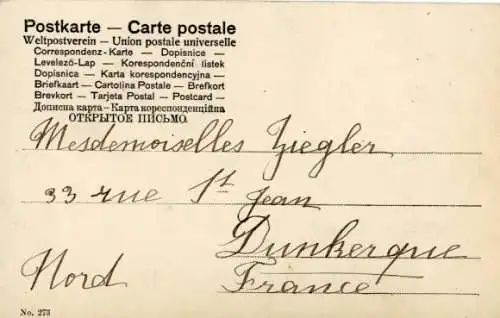 Postkarte — Carte postale
Weltpostverein — Union postale universelle
Correspondenz-Karte — Dopisnice —
Levelező-Lap — Korespondenční listek
Dopisnica — Karta korespondencyjna —
Briefkaart — Cartolina Postale — Brefkort
Brevkort — Tarjeta Postal — Postcard —
Дописна карта — Карта кореспонденційна
ОТКРЫТОЕ ПИСЬМО.
Mesdemoiselles Ziegler
33 rue St Jean
Dunkerque
Nord France
No. 273